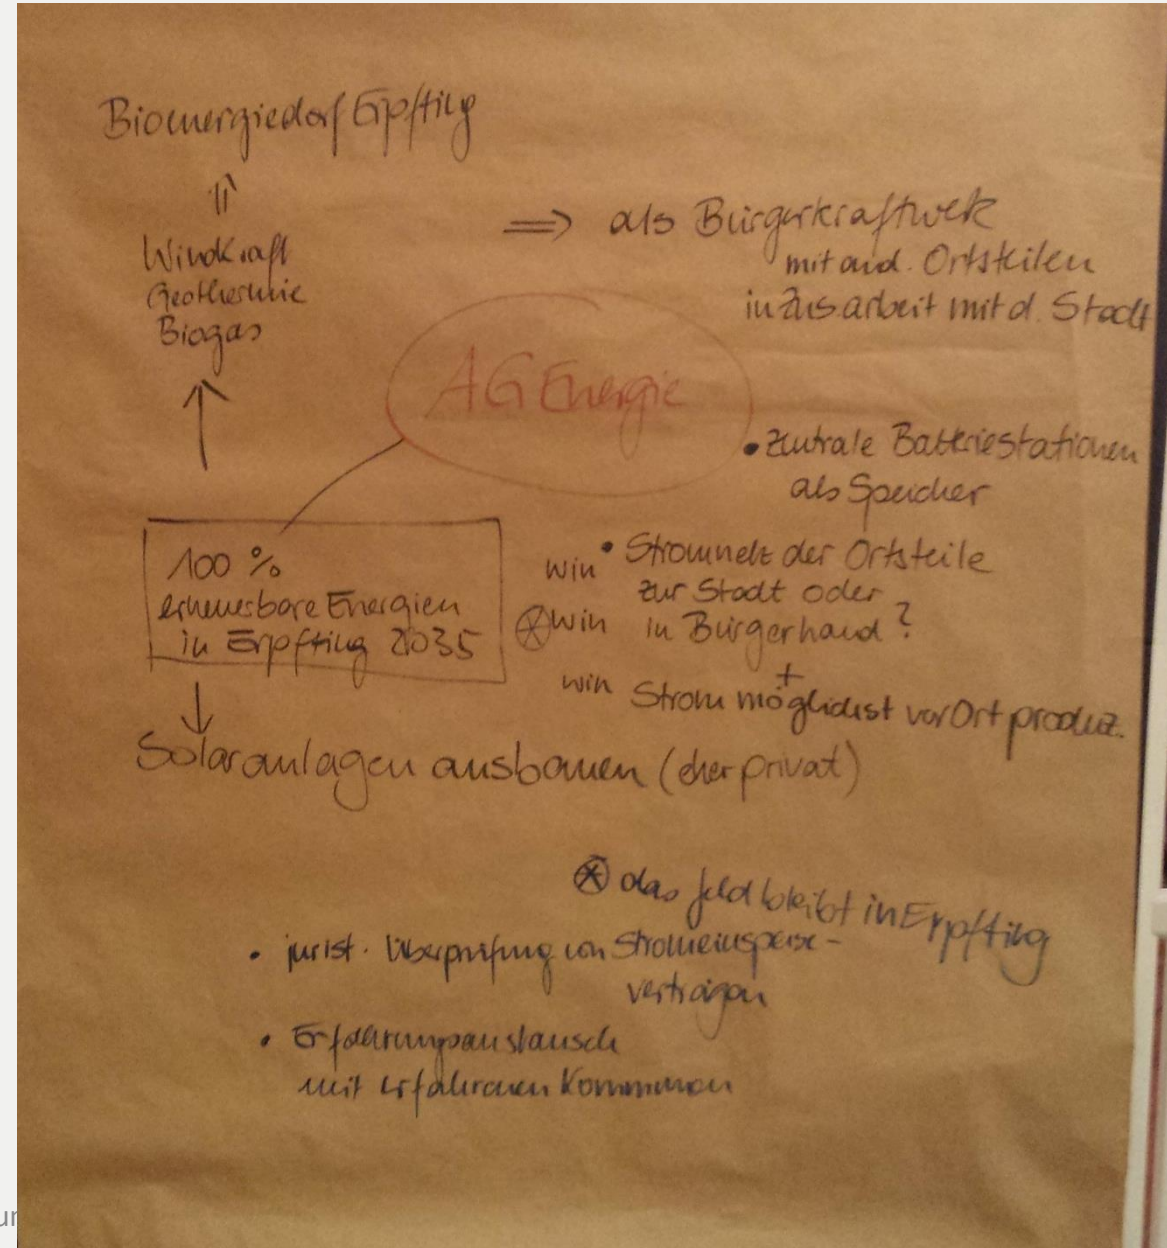 Bioenergiedorf Erpfting
⇑
Windkraft
Geothermie
Biogas
⇒ als Bürgerkraftwerk
mit and. Ortsteilen
in Zus.arbeit mit d. Stadt
AG Energie
• zentrale Batteriestationen
als Speicher
100 %
erneuerbare Energien
in Erpfting 2035
win • Stromnetz der Ortsteile
zur Stadt oder
⊛ win in Bürgerhand ?
+
win Strom möglichst vor Ort produz.
Solaranlagen ausbauen (eher privat)
⊛ das Geld bleibt in Erpfting
• jurist. Überprüfung von Stromeinspeise-
verträgen
• Erfahrungsaustausch
mit erfahrenen Kommunen
ur